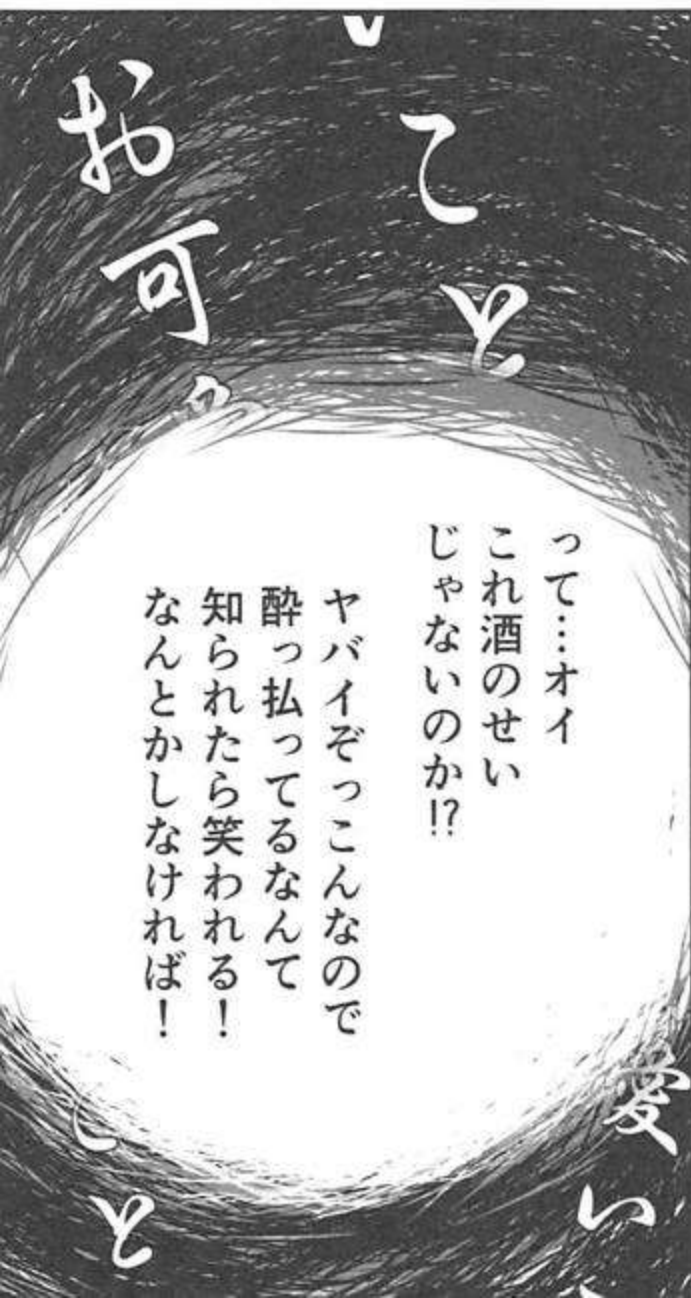 こと
って…オイ
これ酒のせい
じゃないのか!?
ヤバイぞっこんなので
酔っ払ってるなんて
知られたら笑われる！
なんとかしなければ！
お可
愛い
こと